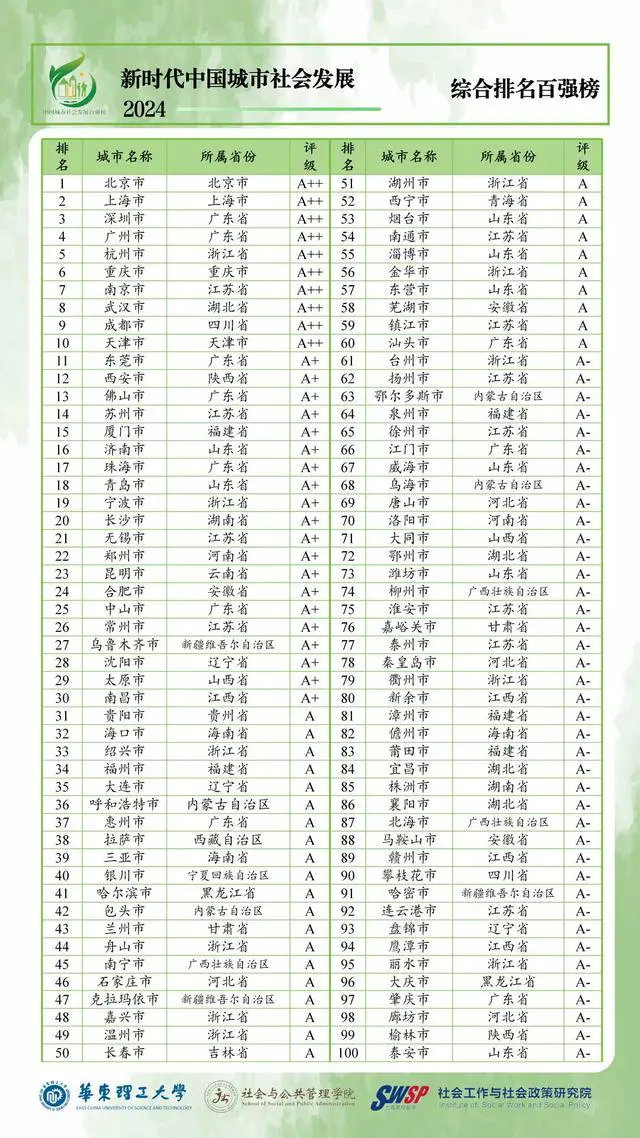 新时代中国城市社会发展
2024
综合排名百强榜
中国城市社会发展百强榜
排名 城市名称 所属省份 评级 排名 城市名称 所属省份 评级
1 北京市 北京市 A++ 51 湖州市 浙江省 A
2 上海市 上海市 A++ 52 西宁市 青海省 A
3 深圳市 广东省 A++ 53 烟台市 山东省 A
4 广州市 广东省 A++ 54 南通市 江苏省 A
5 杭州市 浙江省 A++ 55 淄博市 山东省 A
6 重庆市 重庆市 A++ 56 金华市 浙江省 A
7 南京市 江苏省 A++ 57 东营市 山东省 A
8 武汉市 湖北省 A++ 58 芜湖市 安徽省 A
9 成都市 四川省 A++ 59 镇江市 江苏省 A
10 天津市 天津市 A++ 60 汕头市 广东省 A
11 东莞市 广东省 A+ 61 台州市 浙江省 A-
12 西安市 陕西省 A+ 62 扬州市 江苏省 A-
13 佛山市 广东省 A+ 63 鄂尔多斯市 内蒙古自治区 A-
14 苏州市 江苏省 A+ 64 泉州市 福建省 A-
15 厦门市 福建省 A+ 65 徐州市 江苏省 A-
16 济南市 山东省 A+ 66 江门市 广东省 A-
17 珠海市 广东省 A+ 67 威海市 山东省 A-
18 青岛市 山东省 A+ 68 乌海市 内蒙古自治区 A-
19 宁波市 浙江省 A+ 69 唐山市 河北省 A-
20 长沙市 湖南省 A+ 70 洛阳市 河南省 A-
21 无锡市 江苏省 A+ 71 大同市 山西省 A-
22 郑州市 河南省 A+ 72 鄂州市 湖北省 A-
23 昆明市 云南省 A+ 73 潍坊市 山东省 A-
24 合肥市 安徽省 A+ 74 柳州市 广西壮族自治区 A-
25 中山市 广东省 A+ 75 淮安市 江苏省 A-
26 常州市 江苏省 A+ 76 嘉峪关市 甘肃省 A-
27 乌鲁木齐市 新疆维吾尔自治区 A+ 77 泰州市 江苏省 A-
28 沈阳市 辽宁省 A+ 78 秦皇岛市 河北省 A-
29 太原市 山西省 A+ 79 衢州市 浙江省 A-
30 南昌市 江西省 A+ 80 新余市 江西省 A-
31 贵阳市 贵州省 A 81 漳州市 福建省 A-
32 海口市 海南省 A 82 儋州市 海南省 A-
33 绍兴市 浙江省 A 83 莆田市 福建省 A-
34 福州市 福建省 A 84 宜昌市 湖北省 A-
35 大连市 辽宁省 A 85 株洲市 湖南省 A-
36 呼和浩特市 内蒙古自治区 A 86 襄阳市 湖北省 A-
37 惠州市 广东省 A 87 北海市 广西壮族自治区 A-
38 拉萨市 西藏自治区 A 88 马鞍山市 安徽省 A-
39 三亚市 海南省 A 89 赣州市 江西省 A-
40 银川市 宁夏回族自治区 A 90 攀枝花市 四川省 A-
41 哈尔滨市 黑龙江省 A 91 哈密市 新疆维吾尔自治区 A-
42 包头市 内蒙古自治区 A 92 连云港市 江苏省 A-
43 兰州市 甘肃省 A 93 盘锦市 辽宁省 A-
44 舟山市 浙江省 A 94 鹰潭市 江西省 A-
45 南宁市 广西壮族自治区 A 95 丽水市 浙江省 A-
46 石家庄市 河北省 A 96 大庆市 黑龙江省 A-
47 克拉玛依市 新疆维吾尔自治区 A 97 肇庆市 广东省 A-
48 嘉兴市 浙江省 A 98 廊坊市 河北省 A-
49 温州市 浙江省 A 99 榆林市 陕西省 A-
50 长春市 吉林省 A 100 泰安市 山东省 A-
華東理工大學
EAST CHINA UNIVERSITY OF SCIENCE AND TECHNOLOGY
社会与公共管理学院
School of Social and Public Administration
SWSP
社会工作与社会政策研究院
Institute of Social Work and Social Policy